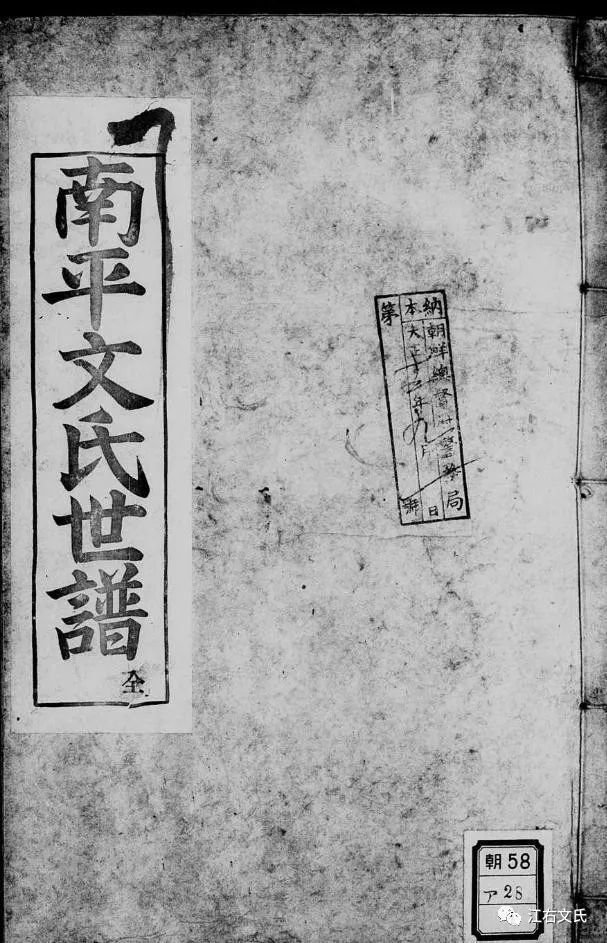 南平文氏世譜
全
納本
朝鮮總督府警務局
大正 年 月 日
第 號
朝58
ア28
江右文氏